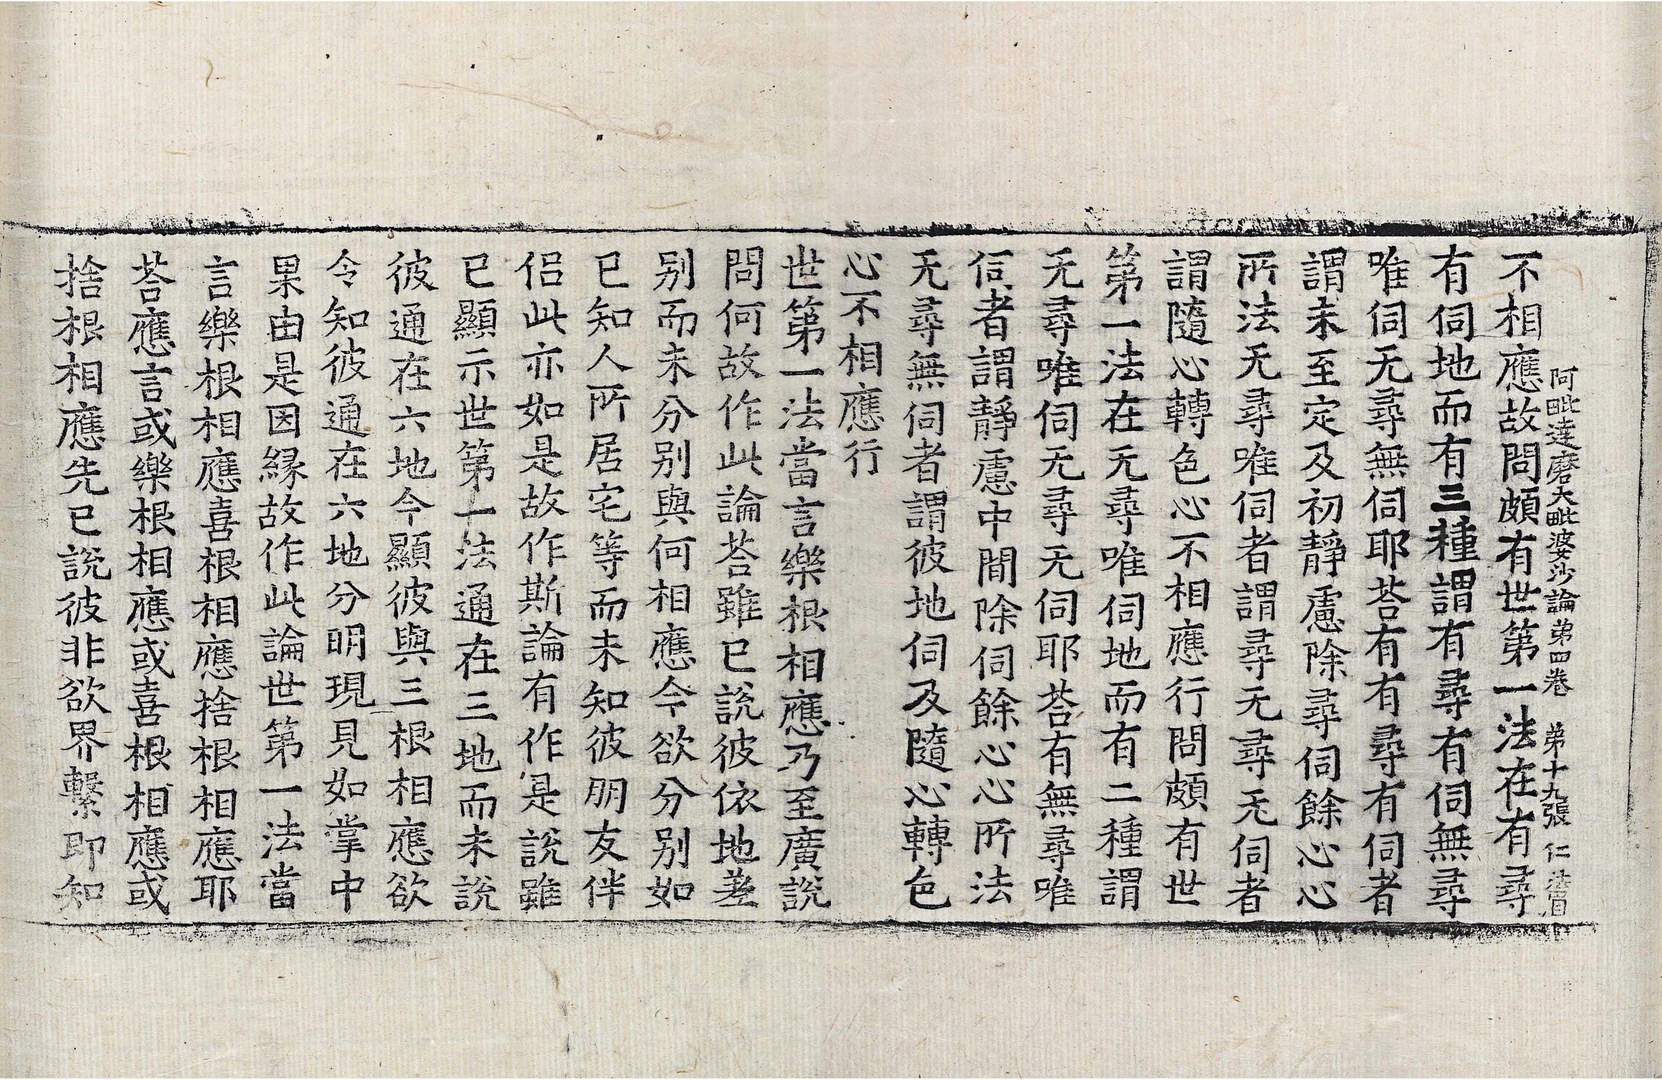 阿毗達磨大毗婆沙論第四卷 第十九張 仁
不相應故問頗有世第一法在有尋
有伺地而有三種謂有尋有伺無尋
唯伺无尋無伺耶荅有有尋有伺者
謂未至定及初靜慮除尋伺餘心心
所法无尋唯伺者謂尋无尋无伺者
謂隨心轉色心不相應行問頗有世
第一法在无尋唯伺地而有二種謂
无尋唯伺无尋无伺耶荅有無尋唯
伺者謂靜慮中間除伺餘心心所法
无尋無伺者謂彼地伺及隨心轉色
心不相應行
世第一法當言樂根相應乃至廣說
問何故作此論荅雖已說彼依地差
別而未分別與何相應今欲分別如
已知人所居宅等而未知彼朋友伴
侶此亦如是故作斯論有作是說雖
已顯示世第一法通在三地而未說
彼通在六地今顯彼與三根相應欲
令知彼通在六地分明現見如掌中
果由是因緣故作此論世第一法當
言樂根相應喜根相應捨根相應耶
荅應言或樂根相應或喜根相應或
捨根相應先已說彼非欲界繫即知